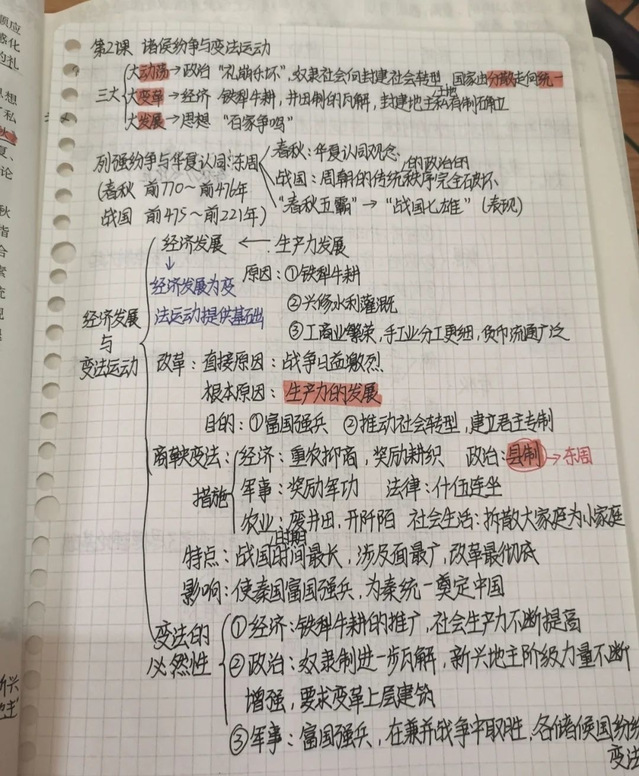 第2课 诸侯纷争与变法运动
大动荡→政治 "礼崩乐坏",奴隶社会向封建社会转型,国家由分散走向统一
三大 大变革→经济 铁犁牛耕,井田制的瓦解,封建地主土地私有制确立
大发展→思想 "百家争鸣"
列强纷争与华夏认同:东周 春秋:华夏认同观念
(春秋 前770~前476年 战国:周朝的传统秩序完全破坏 的政治的
战国 前475~前221年) "春秋五霸"→"战国七雄"(表现)
经济发展 ← 生产力发展
↓ 原因:①铁犁牛耕
经济发展为变
法运动提供基础 ②兴修水利灌溉
经济发展 ③工商业繁荣,手工业分工更细,货币流通广泛
与
变法运动 改革:直接原因:战争日益激烈
根本原因:生产力的发展
目的:①富国强兵 ②推动社会转型,建立君主专制
商鞅变法: 经济:重农抑商,奖励耕织 政治:县制→东周
措施 军事:奖励军功 法律:什伍连坐
农业:废井田,开阡陌 社会生活:拆散大家庭为小家庭
特点:战国时期时间最长,涉及面最广,改革最彻底
影响:使秦国富国强兵,为秦统一奠定中国
变法的 ①经济:铁犁牛耕的推广,社会生产力不断提高
必然性 ②政治:奴隶制进一步瓦解,新兴地主阶级力量不断
增强,要求变革上层建筑
③军事:富国强兵,在兼并战争中取胜,各诸侯国纷纷
变法